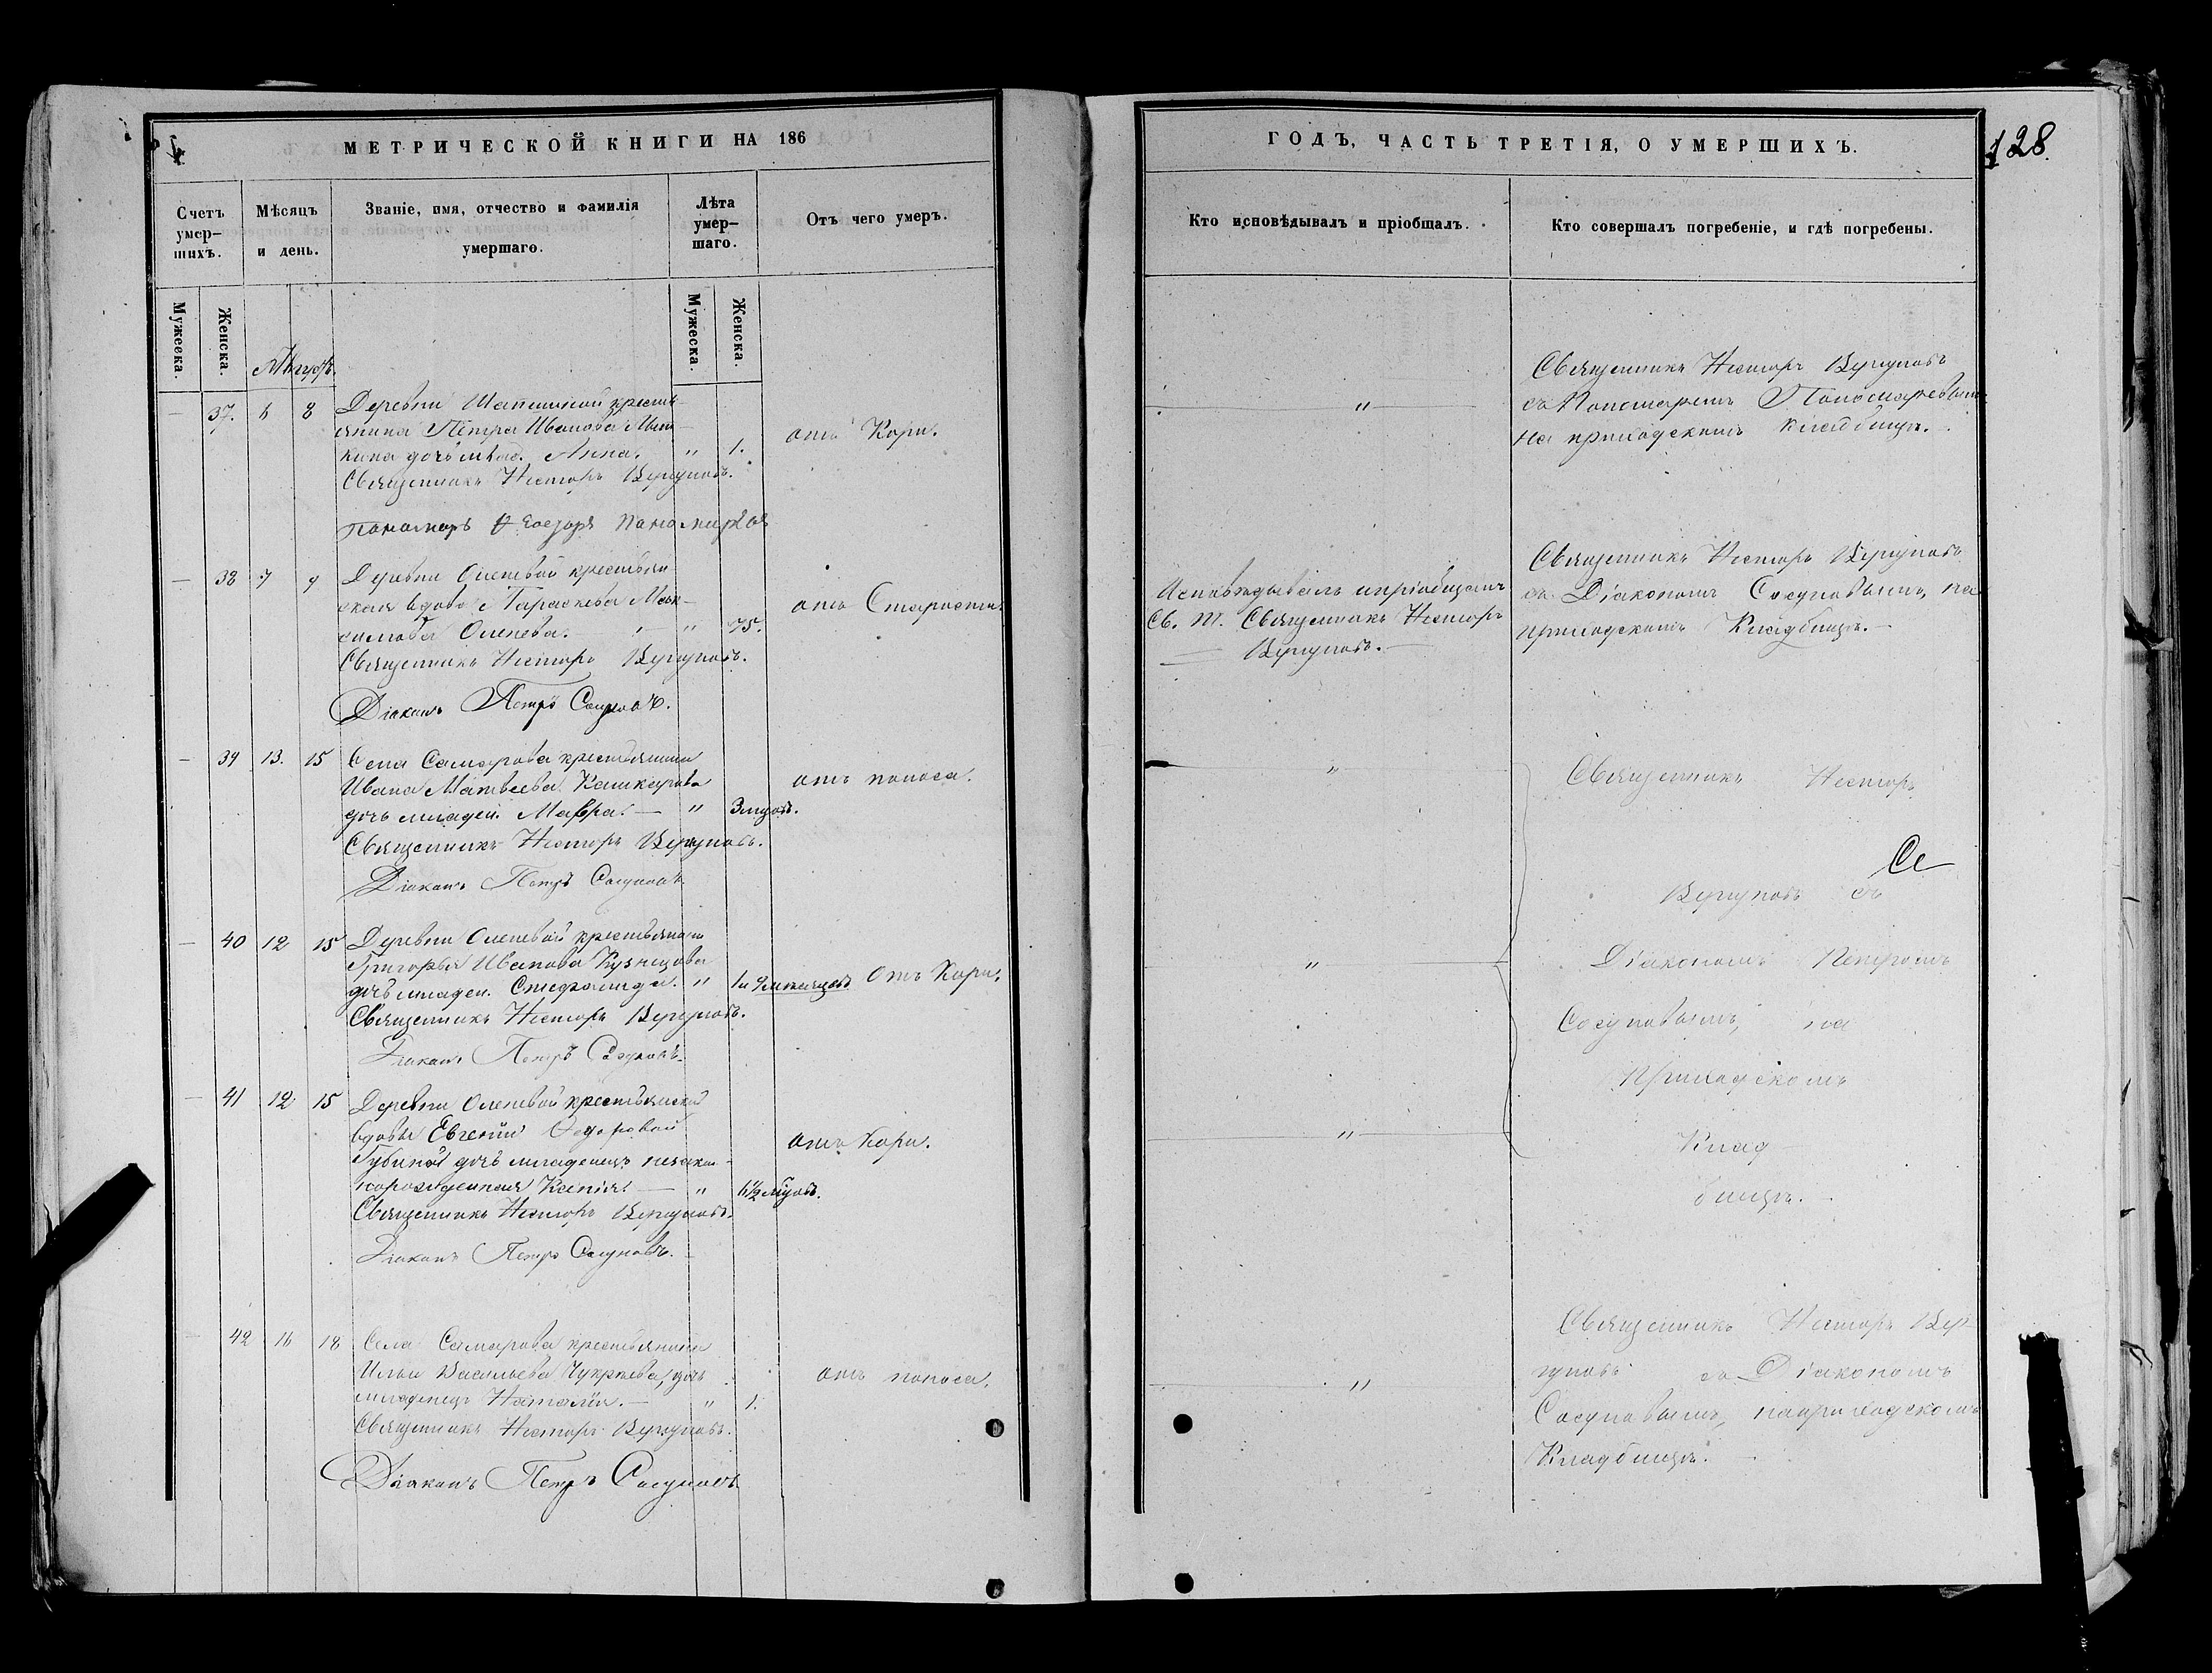 МЕТРИЧЕСКОЙ КНИГИ НА 186
Счетъ умер–шихъ.
Мѣсяцъ и день.
Званіе, имя, отчество и фамилія умершаго.
Лѣта умер–шаго.
Отъ чего умеръ.
Мужеска.
Женска.
Мужеска.
Женска.
37. 6 8 Деревни крестья-
янина Петра Иванова
кина дочь млад. Анна. " 1. отъ Кори.
Священникъ Несторъ Вергуновъ.
пономарь Ѳеодоръ Пономаревъ
38 7 9 Деревни Оленевой крестьян
ская вдова Параскева Мак-
симова Оленева. " 75. отъ Старости.
Священникъ Несторъ Вергуновъ.
Діаконъ Петръ Сосуновъ.
39 13. 15 Села Самарова крестьянина
Ивана Матвеева Кашкарова
дочь младен. Мавра. — " 3 отъ поноса.
Священникъ Несторъ Вергуновъ.
Діаконъ Петръ Сосуновъ
40 12 15 Деревни Оленевой крестьянина
Григорья Иванова Кузнецова
дочь младен. Стефанида. " 1 и 9 месяцовъ Отъ Кори.
Священникъ Несторъ Вергуновъ.
Діаконъ Петръ Сосуновъ.
41 12 15 Деревни Оленевой крестьянской
вдовы Евгеніи Ѳедоровой
Губиной дочь младенецъ незакон-
норожденная Ксенія. — " отъ Кори.
Священникъ Несторъ Вергуновъ.
Діаконъ Петръ Сосуновъ.
42 16 18 Села Самарова крестьянина
Ильи Васильева Чукреева, дочь
младенецъ Наталія. — " 1. отъ поноса.
Священникъ Несторъ Вергуновъ.
Діаконъ Петръ Сосуновъ
ГОДЪ, ЧАСТЬ ТРЕТІЯ, О УМЕРШИХЪ.
128.
Кто исповѣдывалъ и пріобщалъ.
Кто совершалъ погребеніе, и гдѣ погребены.
Священникъ Несторъ Вергуновъ
съ Пономаремъ Пономаревымъ
на приходскомъ кладбищѣ.
Исповѣдывалъ и пріобщалъ
Св. Т. Священникъ Несторъ
Вергуновъ.
Священникъ Несторъ Вергуновъ
съ Діакономъ Сосуновымъ, на
приходскомъ Кладбищѣ.
Священникъ Несторъ
Вергуновъ съ
Діакономъ Петромъ
Сосуновымъ, на
Приходскомъ
Клад
бищѣ.
Священникъ Несторъ Вер
гуновъ съ Діакономъ
Сосуновымъ, на приходскомъ
Кладбищѣ.